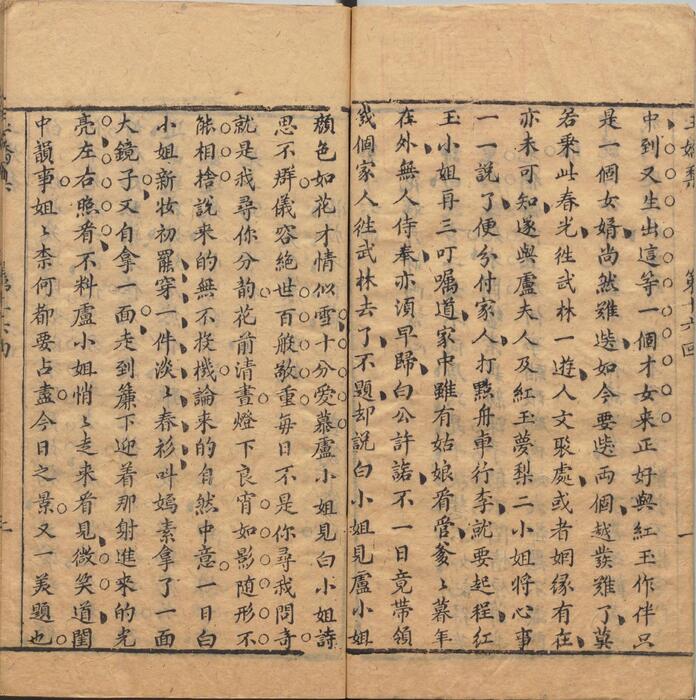 中到又生出這等一個才女来正好與紅玉作伴只
是一個女婿尚然難選如今要選両個越發難了莫
若乗此春光徃武林一遊人文聚處或者姻縁有在
亦未可知遂與盧夫人及紅玉夢梨二小姐將心事
一一說了便分付家人打點舟車行李就要起程紅
玉小姐再三叮嘱道家中雖有姑娘看管爹〻暮年
在外無人侍奉亦須早歸白公許諾不一日竟帶領
幾個家人徃武林去了不題却説白小姐見盧小姐
顔色如花才情似雪十分愛慕盧小姐見白小姐詩
思不群儀容絶世百般敬重每日不是你尋我問奇
就是我尋你分韵花前清晝燈下良宵如影随形不
能相捨説来的無不投機論来的自然中意一日白
小姐新妆初罷穿一件淡〻春衫叫嫣素拿了一面
大鏡子又自拿一面走到簾下迎着那射進来的光
亮左右照看不料盧小姐悄〻走来看見微笑道閨
中韻事姐〻柰何都要占盡今日之景又一美題也